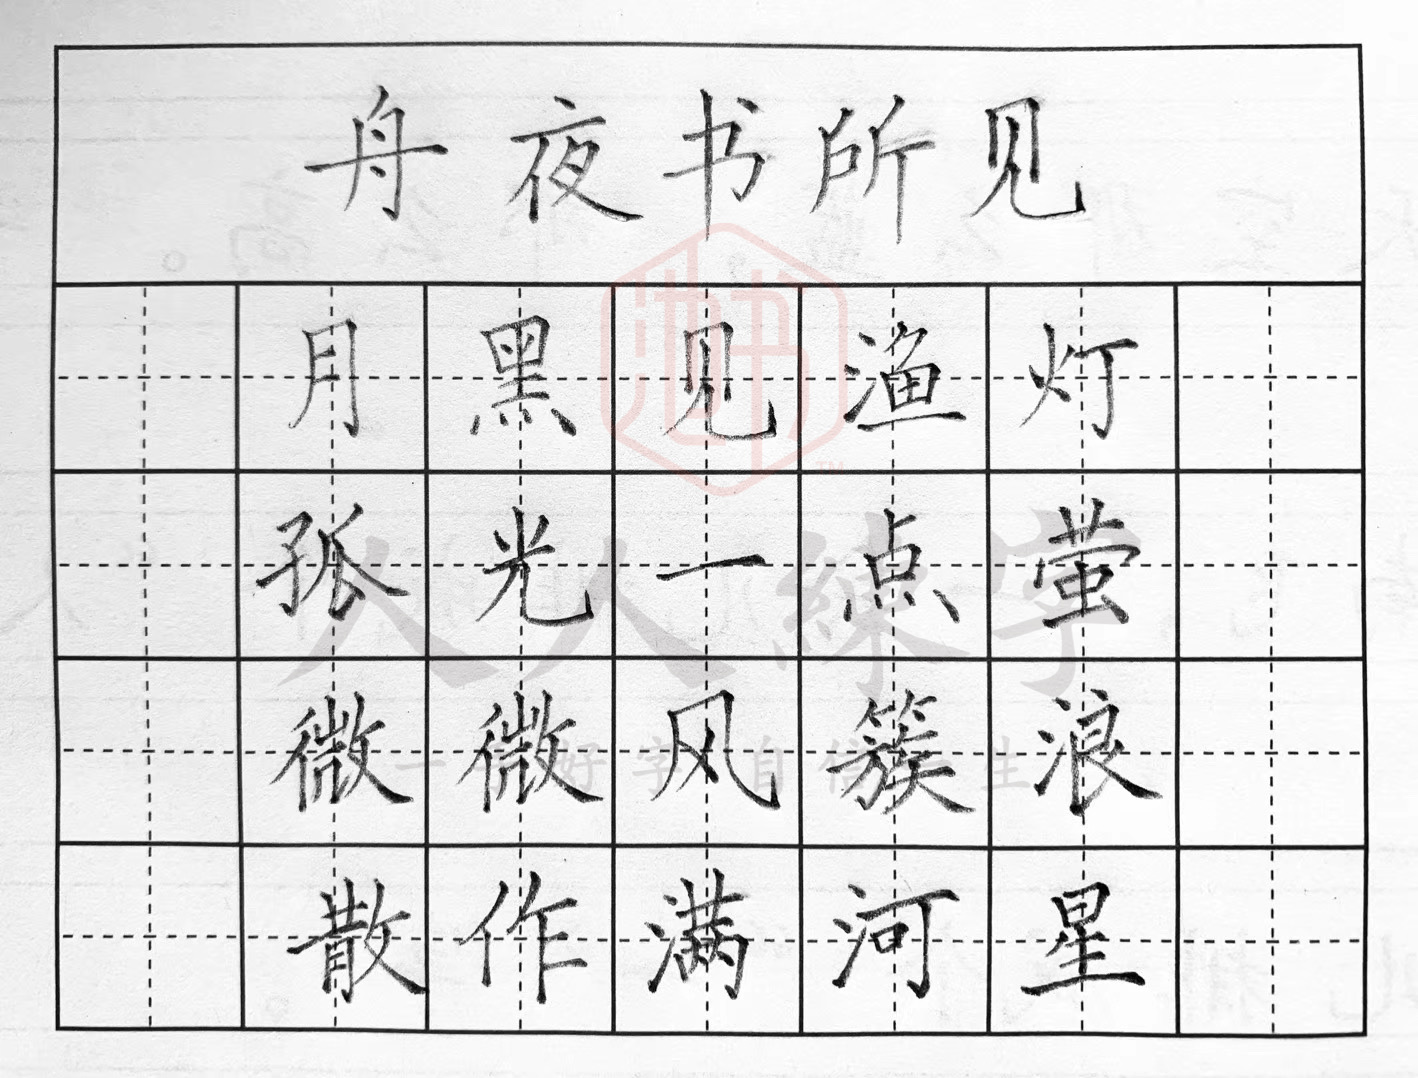 舟夜书所见
月黑见渔灯
孤光一点萤
微微风簇浪
散作满河星
人人練字
一 好字 自信 生
TM